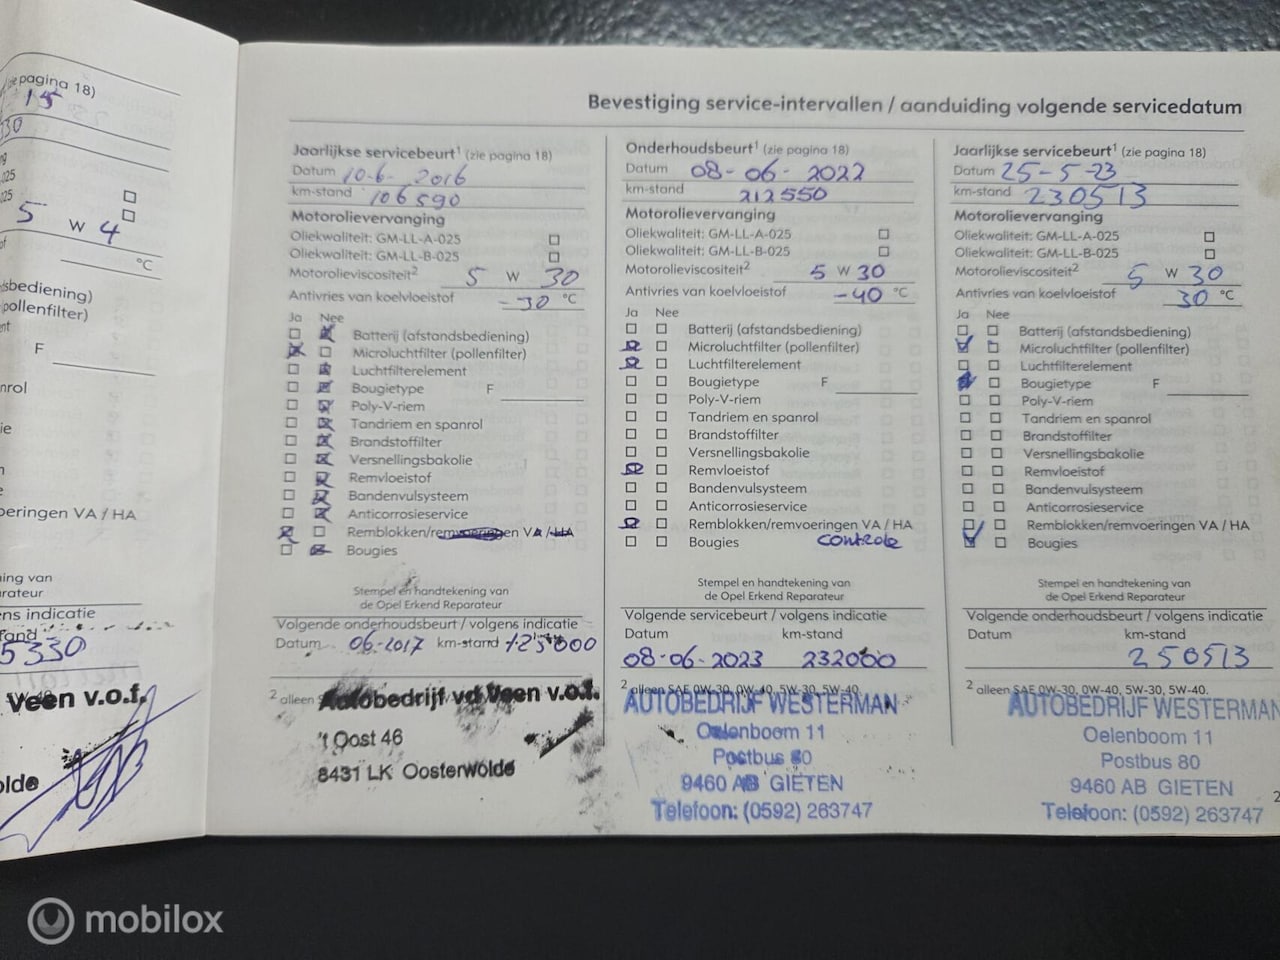 (zie pagina 18)
15
330
025
025
5 W 4
°C
sbediening)
pollenfilter)
nt
F
nrol
ie
n
e
oeringen VA / HA
ing van
rateur
ens indicatie
5330
Veen v.o.f.
olde
Bevestiging service-intervallen / aanduiding volgende servicedatum
Jaarlijkse servicebeurt¹ (zie pagina 18)
Datum 10-6- 2016
km-stand 106590
Motorolievervanging
Oliekwaliteit: GM-LL-A-025
Oliekwaliteit: GM-LL-B-025
Motorolieviscositeit² 5 W 30
Antivries van koelvloeistof -30 °C
Ja Nee
Batterij (afstandsbediening)
Microluchtfilter (pollenfilter)
Luchtfilterelement
Bougietype F
Poly-V-riem
Tandriem en spanrol
Brandstoffilter
Versnellingsbakolie
Remvloeistof
Bandenvulsysteem
Anticorrosieservice
Remblokken/remvoeringen VA / HA
Bougies
Stempel en handtekening van
de Opel Erkend Reparateur
Volgende onderhoudsbeurt / volgens indicatie
Datum 06-2017 km-stand 125000
² alleen
Autobedrijf vd Veen v.o.f.
't Oost 46
8431 LK Oosterwolde
Onderhoudsbeurt¹ (zie pagina 18)
Datum 08-06-2022
km-stand 212550
Motorolievervanging
Oliekwaliteit: GM-LL-A-025
Oliekwaliteit: GM-LL-B-025
Motorolieviscositeit² 5 W 30
Antivries van koelvloeistof -40 °C
Ja Nee
Batterij (afstandsbediening)
Microluchtfilter (pollenfilter)
Luchtfilterelement
Bougietype F
Poly-V-riem
Tandriem en spanrol
Brandstoffilter
Versnellingsbakolie
Remvloeistof
Bandenvulsysteem
Anticorrosieservice
Remblokken/remvoeringen VA / HA
Bougies controle
Stempel en handtekening van
de Opel Erkend Reparateur
Volgende servicebeurt / volgens indicatie
Datum km-stand
08-06-2023 232000
² alleen SAE 0W-30, 0W-40, 5W-30, 5W-40.
AUTOBEDRIJF WESTERMAN
Oelenboom 11
Postbus 80
9460 AB GIETEN
Telefoon: (0592) 263747
Jaarlijkse servicebeurt¹ (zie pagina 18)
Datum 25-5-23
km-stand 230513
Motorolievervanging
Oliekwaliteit: GM-LL-A-025
Oliekwaliteit: GM-LL-B-025
Motorolieviscositeit² 5 W 30
Antivries van koelvloeistof 30 °C
Ja Nee
Batterij (afstandsbediening)
Microluchtfilter (pollenfilter)
Luchtfilterelement
Bougietype F
Poly-V-riem
Tandriem en spanrol
Brandstoffilter
Versnellingsbakolie
Remvloeistof
Bandenvulsysteem
Anticorrosieservice
Remblokken/remvoeringen VA / HA
Bougies
Stempel en handtekening van
de Opel Erkend Reparateur
Volgende onderhoudsbeurt / volgens indicatie
Datum km-stand
250513
² alleen SAE 0W-30, 0W-40, 5W-30, 5W-40.
AUTOBEDRIJF WESTERMAN
Oelenboom 11
Postbus 80
9460 AB GIETEN
Telefoon: (0592) 263747
2
mobilox